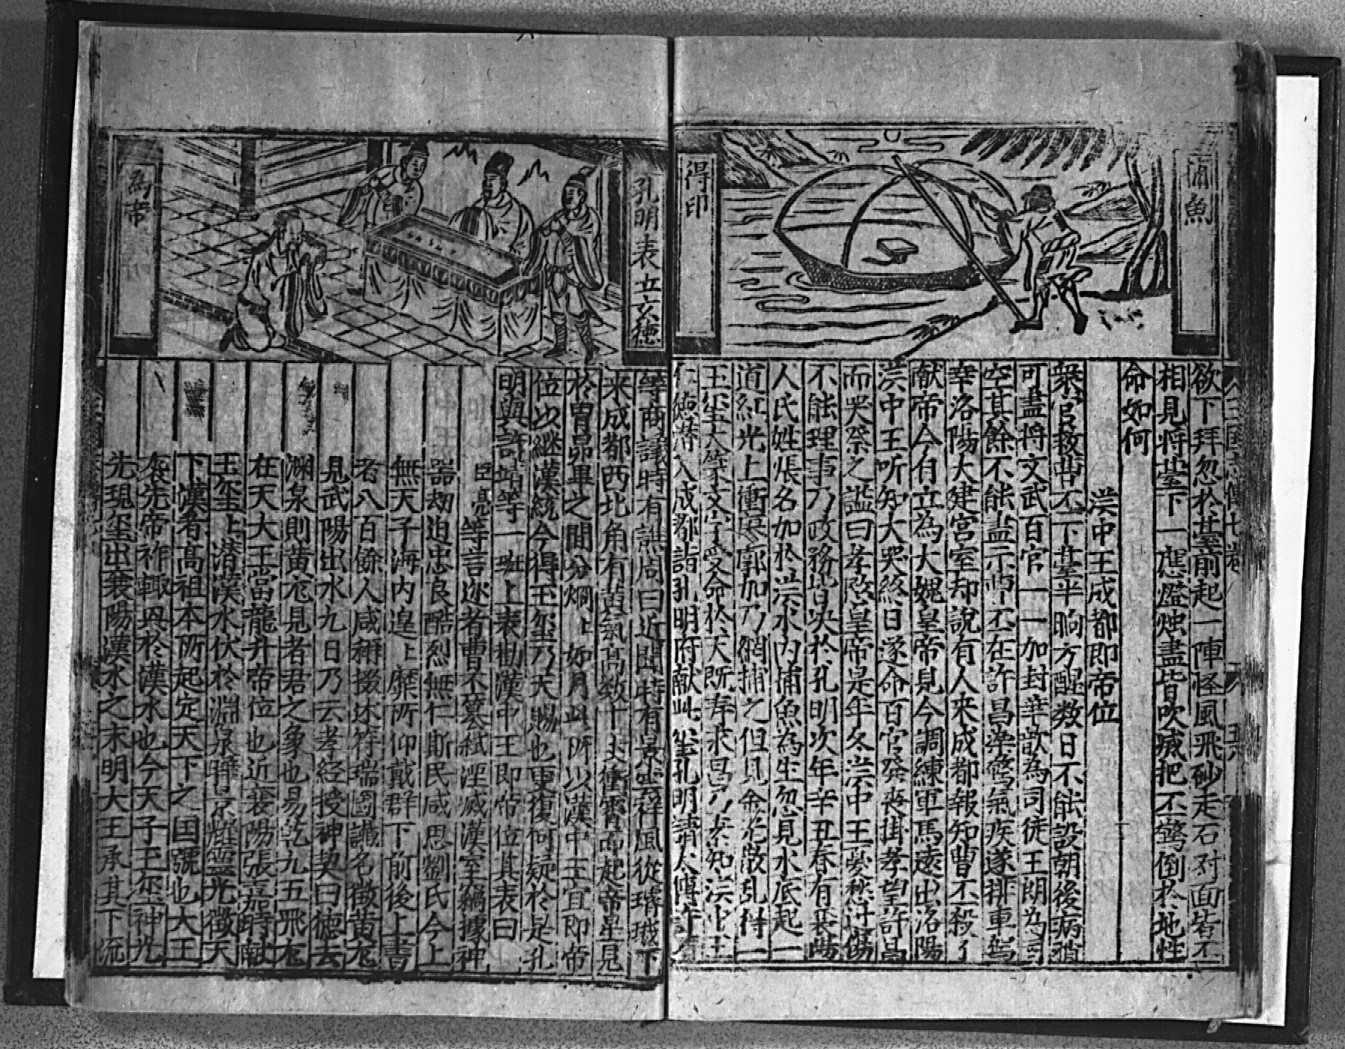 捕魚
得印
欲下拜忽於臺前起一陣怪風飛砂走石对面皆不
相見將臺下一應燈烛盡皆吹滅把丕驚倒於地性
命如何
漢中王成都即帝位
衆官救曹丕下臺半晌方醒数日不能設朝後病稍
可盡将文武百官一一加封華歆為司徒王朗為司
空其餘不能盡示曹丕在許昌染驚氣疾遂排車駕
幸洛陽大建宮室却說有人來成都報知曹丕殺了
献帝今自立為大魏皇帝見今調練軍馬還出洛陽
漢中王听知大哭終日遂命百官發喪掛孝望許昌
而哭祭之謚曰孝愍皇帝是年冬漢中王憂愁過傷
不能理事乃政務皆决於孔明次年辛丑春有襄陽
人氏姓張名加於漢水内捕魚為生忽見水底起一
道紅光上衝
加乃網捕之但見金光散乱得一
玉玺大篆文字受命於天既寿永昌乃素知漢中王
仁德潜入成都詣孔明府献此玺孔明請太傅許靖
孔明表立玄德
為帝
等商議時有譙周曰近聞時有景雲祥風從璿璣下
來成都西北角有黃氣高数十丈衝霄而起帝星見
於胃昴畢之間分烱上如月此所以漢中王宜即帝
位以継漢統今得玉玺乃天賜也更復何疑於是孔
明與許靖等一班上表勸漢中王即帝位其表曰
臣亮等言近者曹丕篡弒湮滅漢室竊據神
器刼迫忠良酷烈無仁斯民咸思劉氏今上
無天子海内遑上靡所仰戴群下前後上書
者八百餘人咸稱掇述符瑞圖讖名徵黄龙
見武陽出水九日乃云孝經授神契曰德去
淵泉則黄龙見者君之象也易乾九五飛龙
在天大王當龍升帝位也近襄陽張嘉時献
玉玺上潜漢水伏於淵泉暉景爐靈光徹天
下漢者高祖本所起定天下之国號也大王
襲先帝祚輙興於漢水也今天子玉玺神光
先現玺出襄陽漢水之末明大王承其下流